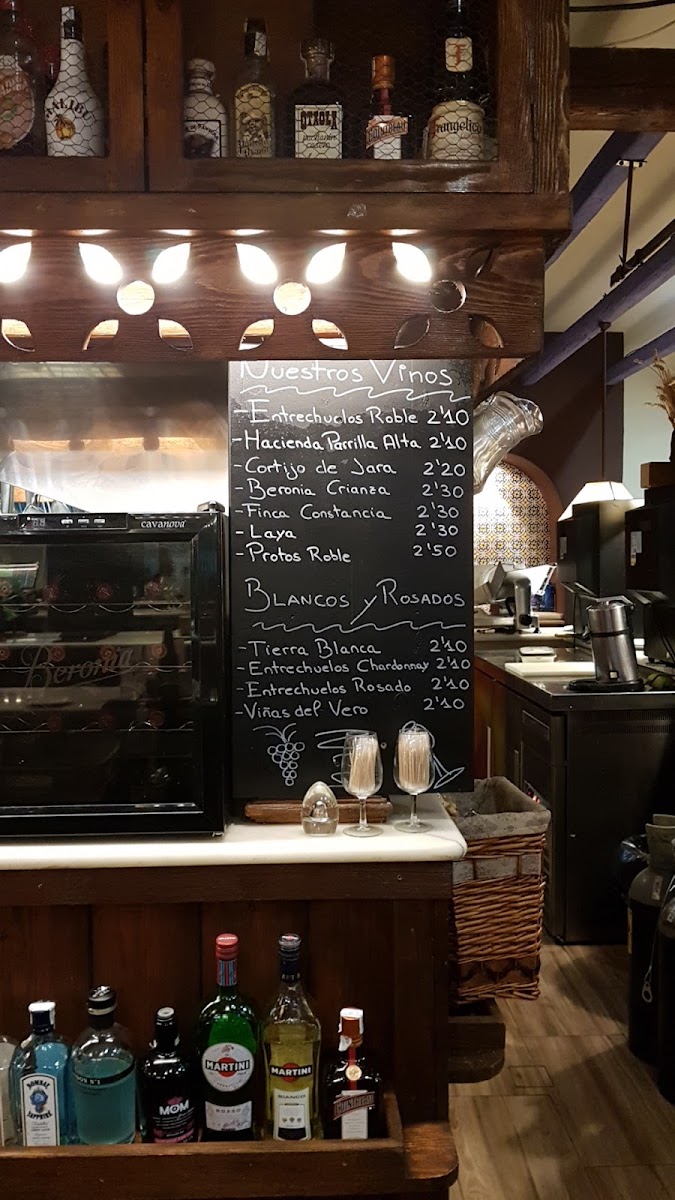 MALIBU
OTAOLA
COINTREAU
Frangelico
Nuestros Vinos
- Entrechuelos Roble 2'10
- Hacienda Parrilla Alta 2'10
- Cortijo de Jara 2'20
- Beronia Crianza 2'30
- Finca Constancia 2'30
- Laya 2'30
- Protos Roble 2'50
BLANCOS y ROSADOS
- Tierra Blanca 2'10
- Entrechuelos Chardonnay 2'10
- Entrechuelos Rosado 2'10
- Viñas del Vero 2'10
cavanova
Beronia
BOMBAY
SAPPHIRE
MOM
MARTINI
ROSSO
MARTINI
BIANCO
COINTREAU